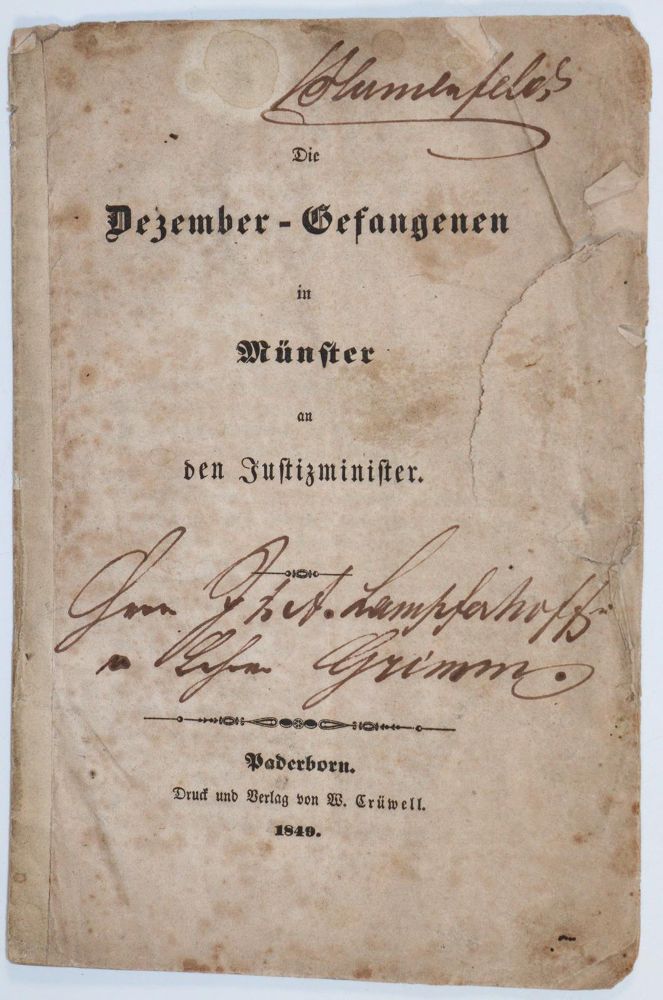 Blumenfeld
Die
Dezember-Gefangenen
in
Münster
an
den Justizminister.
Herrn J & A. Lampferhoff
Grimm.
Paderborn.
Druck und Verlag von W. Crüwell.
1849.